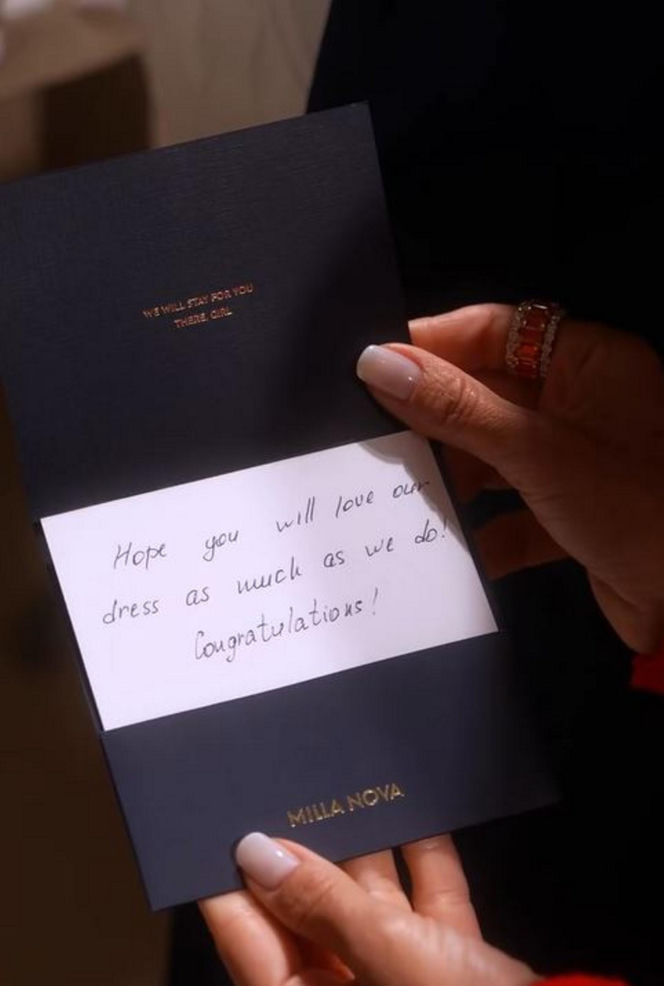 WE WILL STAY FOR YOU
THERE, GIRL
Hope you will love our
dress as much as we do!
Congratulations!
MILLA NOVA